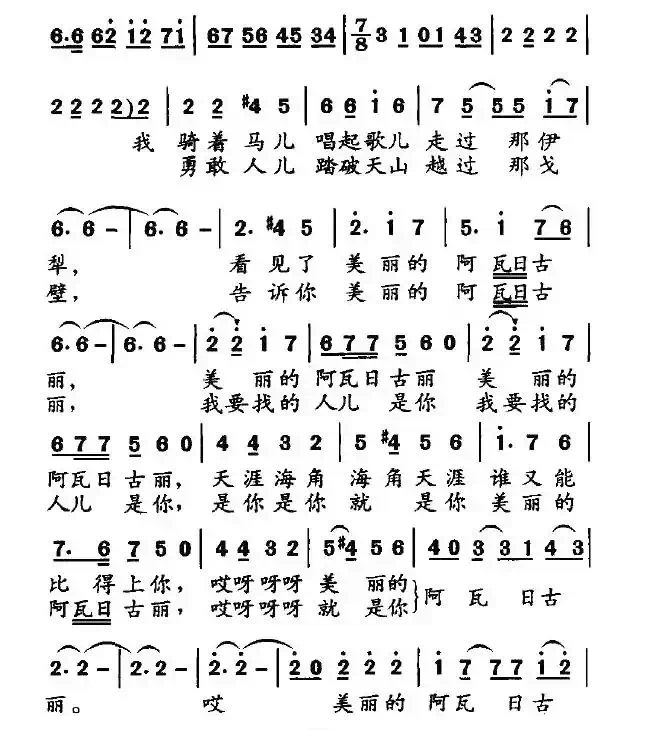 6·6 6 2 1 2 7 1 | 6 7 5 6 4 5 3 4 | 7/8 3 1 0 1 4 3 | 2 2 2 2 |
2 2 2 2) 2 | 2 2 #4 5 | 6 6 1 6 | 7 5 5 5 1 7 |
我 骑着马儿 唱起歌儿 走过 那伊
勇敢人儿 踏破天山 越过 那戈
6· 6 - | 6· 6 - | 2· #4 5 | 2· 1 7 | 5· 1 7 6 |
犁， 看见了 美丽的 阿瓦日古
壁， 告诉你 美丽的 阿瓦日古
6· 6 - | 6· 6 - | 2 2 1 7 | 6 7 7 5 6 0 | 2 2 1 7 |
丽， 美丽的 阿瓦日古丽 美丽的
丽， 我要找的 人儿是你 我要找的
6 7 7 5 6 0 | 4 4 3 2 | 5 #4 5 6 | 1· 7 6 |
阿瓦日古丽， 天涯海角 海角天涯 谁又能
人儿是你， 是你是你 就是你 美丽的
7· 6 7 5 0 | 4 4 3 2 | 5 #4 5 6 | 4 0 3 3 1 4 3 |
比得上你， 哎呀呀呀 美丽的
阿瓦日古丽， 哎呀呀呀 就是你} 阿瓦日古
2· 2 - | 2· 2 - | 2· 2 - | 2 0 2 2 2 | 1 7 7 7 1 2 |
丽。 哎 美丽的 阿瓦日古